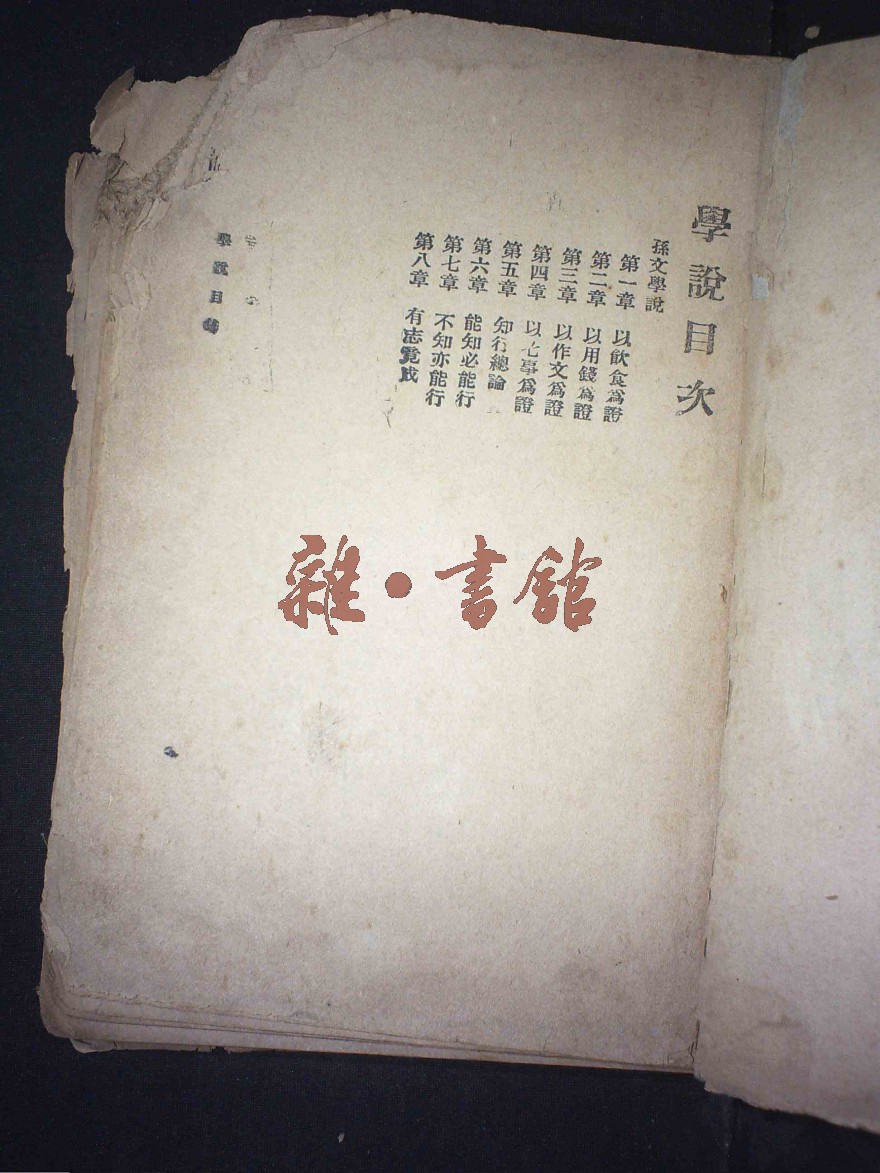 學說目次
孫文學說
第一章 以飲食爲證
第二章 以用錢爲證
第三章 以作文爲證
第四章 以七事爲證
第五章 知行總論
第六章 能知必能行
第七章 不知亦能行
第八章 有志竟成
學說目
雜・書館